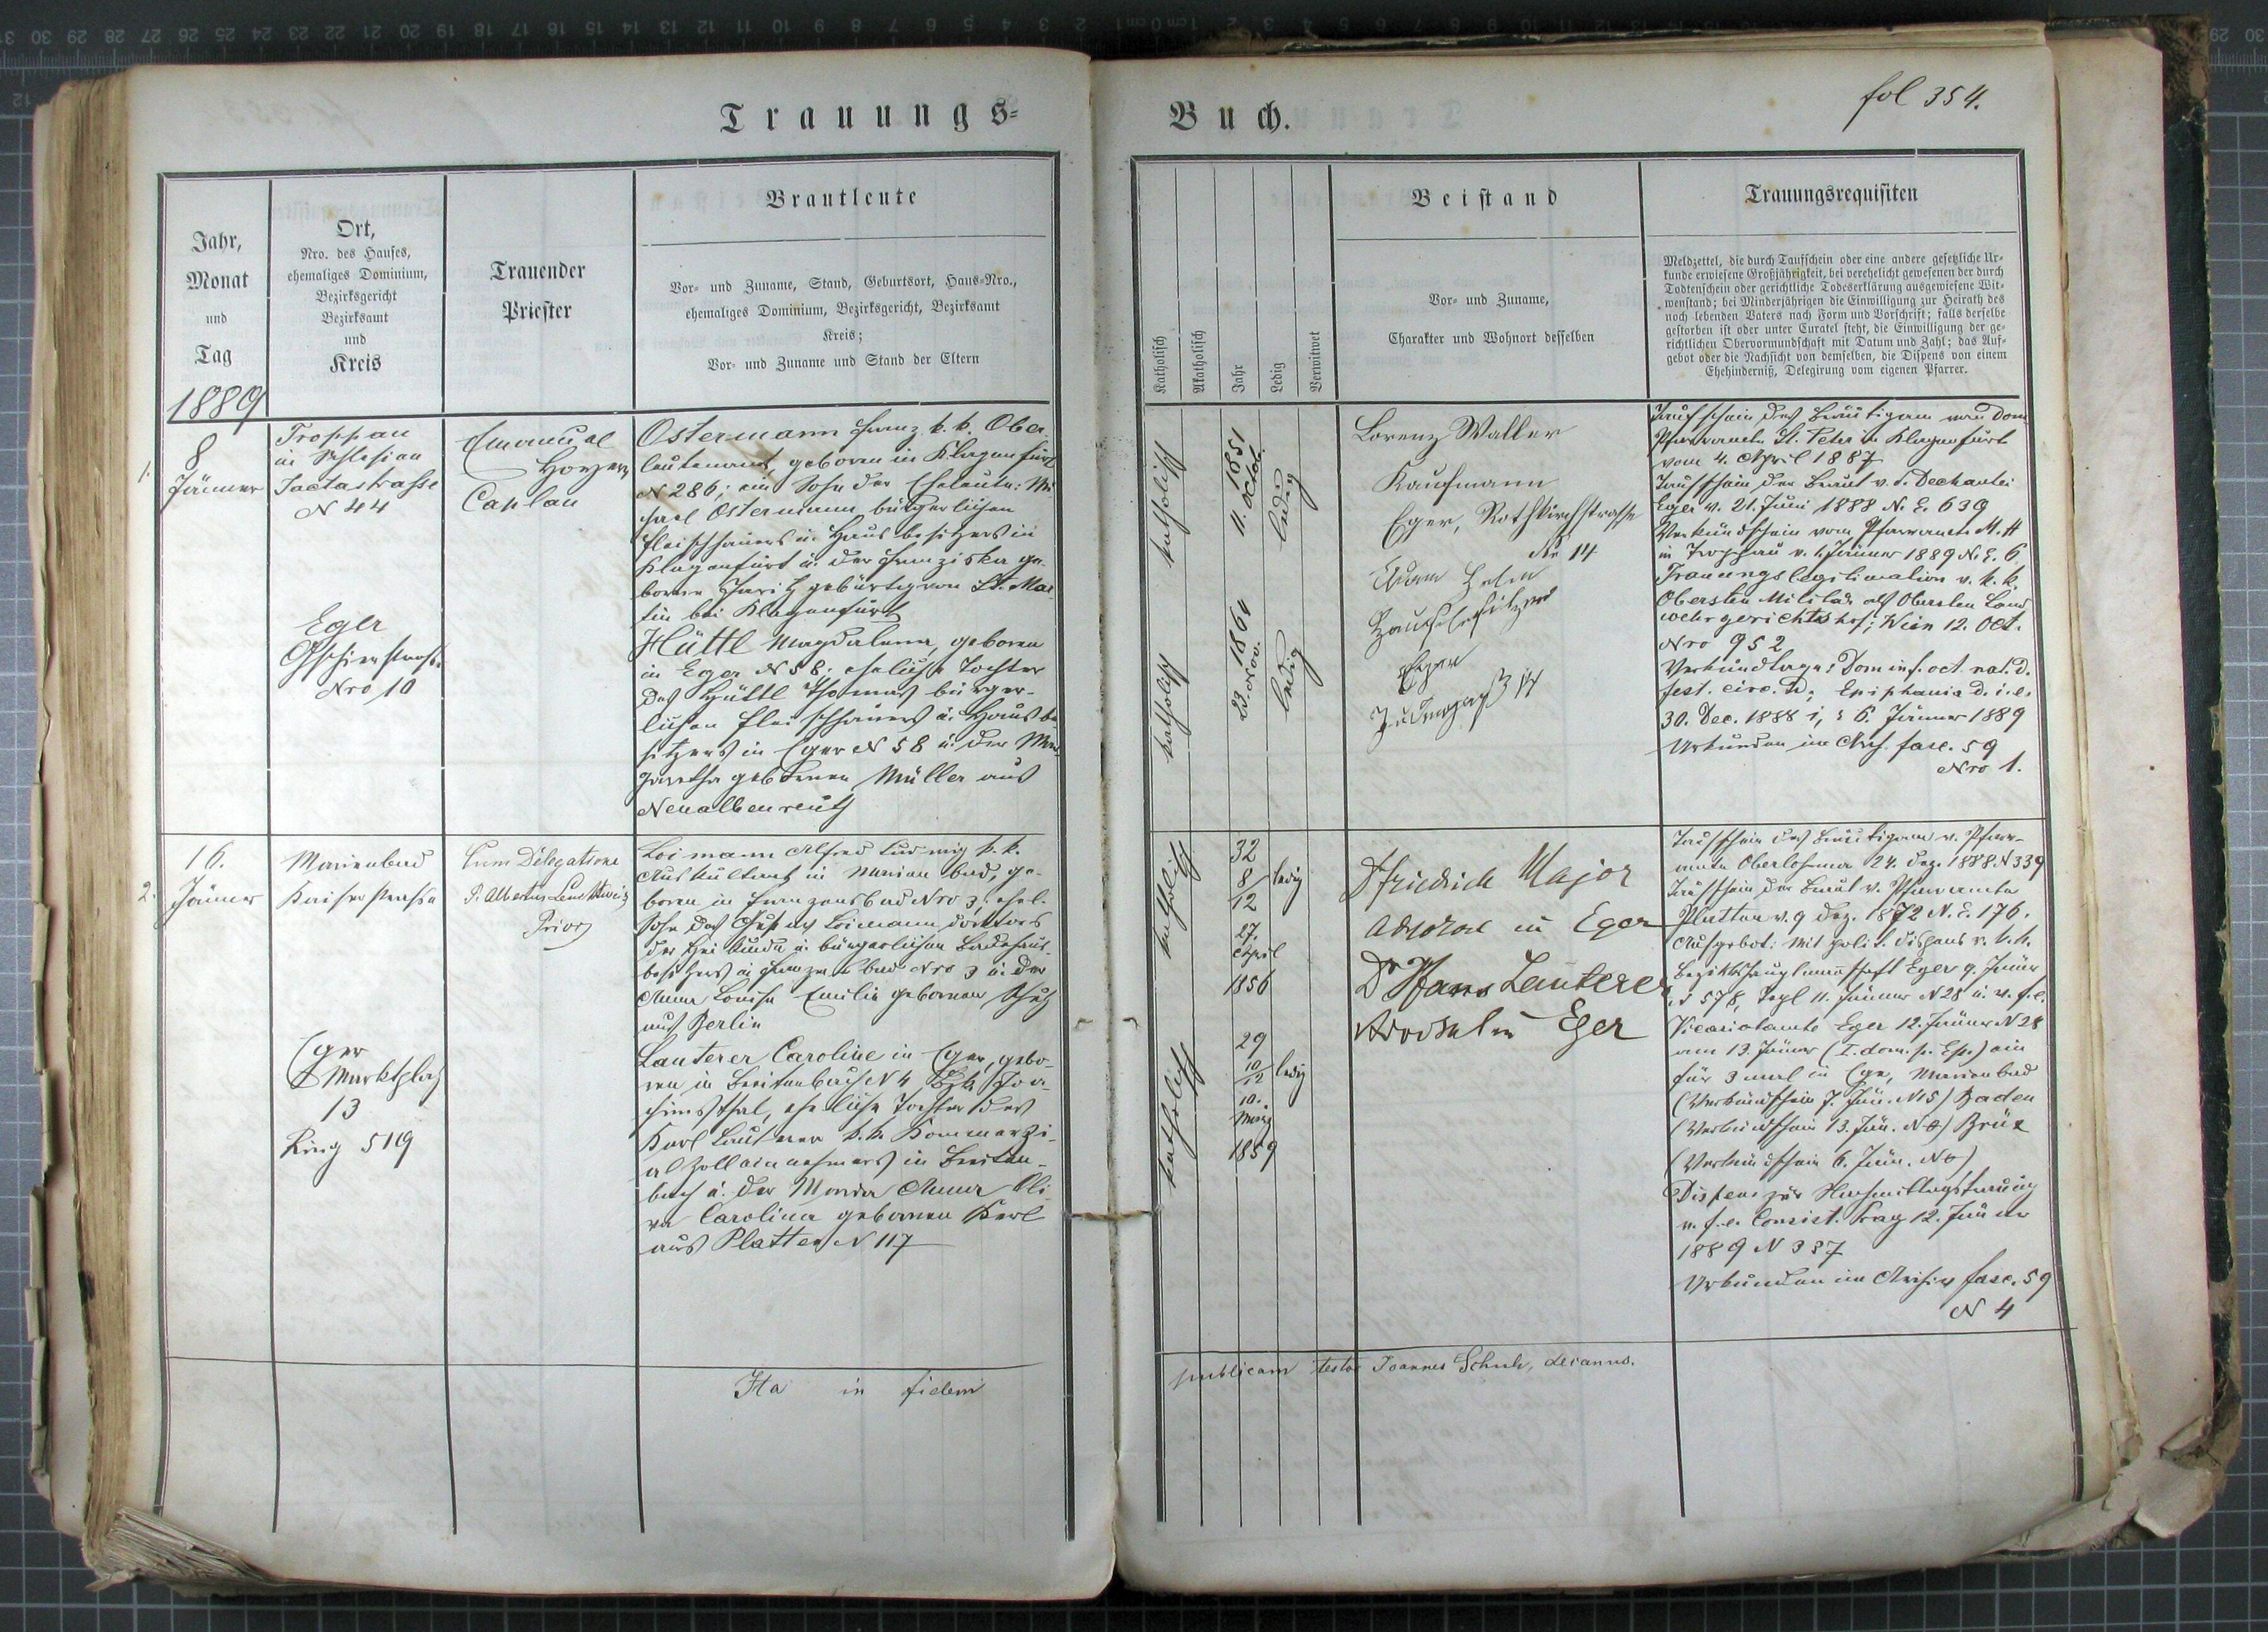 Trauungs=
Buch.
fol 354.
Jahr,
Monat
und
Tag
Ort,
Nro. des Hauses,
ehemaliges Dominium,
Bezirksgericht
Bezirksamt
und
Kreis
Trauender
Priester
Brautleute
Vor- und Zuname, Stand, Geburtsort, Haus-Nro.,
ehemaliges Dominium, Bezirksgericht, Bezirksamt
Kreis;
Vor- und Zuname und Stand der Eltern
Katholisch
Akatholisch
Jahr
Ledig
Verwitwet
Beistand
Vor- und Zuname,
Charakter und Wohnort desselben
Trauungsrequisiten
Meldzettel, die durch Taufschein oder eine andere gesetzliche Ur-
kunde erwiesene Großjährigkeit, bei verehelicht gewesenen der durch
Todtenschein oder gerichtliche Todeserklärung ausgewiesene Wit-
wenstand; bei Minderjährigen die Einwilligung zur Heirath des
noch lebenden Vaters nach Form und Vorschrift; falls derselbe
gestorben ist oder unter Curatel steht, die Einwilligung der ge-
richtlichen Obervormundschaft mit Datum und Zahl; das Auf-
gebot oder die Nachsicht von demselben, die Dispens von einem
Ehehinderniß, Delegirung vom eigenen Pfarrer.
1889
1.
8
Jänner
Troppau
in Schlesien
N 44
Eger
Nro 10
Emanuel
Caplan
Ostermann Franz k. k. Ober
leutenant, geboren in Klagenfurt
N 286; ein Sohn der Eheleute: Mi
chael Ostermann bürgerlichen
Fleischhauers u. Hausbesitzers in
Klagenfurt u. der Franziska ge-
boren gebürtig von St. Mar
tin bei Klagenfurt
Hüttl Magdalena, geboren
in Eger N 58; eheliche Tochter
des Hüttl Thomas bürger-
lichen Fleischhauers u. Hausbe
sitzers in Eger N 58 u. der Mar
garetha gebornen Müller aus
Neualbenreuth
katholisch
1851
11. Octob.
ledig
katholisch
1860
23. Nov.
ledig
Lorenz Waller
Kaufmann
Eger,
No 14
Adam
Hausbesitzer
Eger
14
Taufschein des Bräutigam vom Dom
Pfarramte St. Peter in Klagenfurt
vom 4. April 1887
Taufschein der Braut v. d. Dechantei
Eger v. 21. Juni 1888 N. E. 639
Verkündschein vom Pfarramte M. H
in Troppau v. 1. Jänner 1889 N. E. 6
Trauungslegitimation v. k. k.
Obersten Militär als Obersten Land
wehrgerichtshof; Wien 12. Oct.
Nro 952
Verkündtage: Dom inf. oct. nat. d.
fest. circ. D; Epiphania d. i. e.
30. Dec. 1888 i, 6. Jänner 1889
Urkunden im Arch. fasc. 59
Nro 1.
2.
16.
Jänner
Marienbad
Kaiserstrasse
Eger
Marktplatz
13
Ring 519
Cum Delegatione
P. Albertus
Prior
Loimann Alfred Ludwig k. k.
Auskultant in Marienbad, ge-
boren in Franzensbad Nro 3, ehel.
Sohn des Gustav Loimann, Doktors
der Heilkunde u. bürgerlichen Badehaus-
besitzers in Franzensbad Nro 3 u. der
Anna Louise Emilie gebornen
aus Berlin
Lauterer Caroline in Eger, gebo-
ren in Breitenbach N 4 Bzk. Joa-
chimsthal, eheliche Tochter des
Karl Lauterer k. k. Kommerzi-
al Zolleinnehmers in Breiten-
bach u. der Maria Anna
Carolina gebornen Kerl
aus Platten N 117
katholisch
32
8
12
ledig
27.
April
1856
katholisch
29
10
12
ledig
10.
März
1859
Dr Friedrich Major
Advokat in Eger
Dr Hans Lauterer
Advokat in Eger
Taufschein des Bräutigams v. Pfarr-
amte Oberlohma 24. Dez. 1888 N 339
Taufschein der Braut v. Pfarramte
Platten v. 9 Dez. 1872 N. E. 176.
Aufgebot: mit polit. Dispens v. k. k.
Bezirkshauptmannschaft Eger 9. Jänner
N 578, 11. Jänner N 28 u. v. f. e.
Vicariatamte Eger 12. Jänner N 28
am 13. Jänner (I. dom. p. Ep.) ein
für 3mal in Eger, Marienbad
(Verkündschein 7. Jän. N 15) Baden
(Verkündschein 13. Jän. N o) Brüx
(Verkündschein 6. Jän. N o)
Dispens zur Nachmittagstrauung
v. f. e. Consist. Prag 12. Jänner
1889 N 387
Urkunden im Archiv fasc. 59
N 4
Ita in fidem
publicam testor Joannes Schuh, decanus.